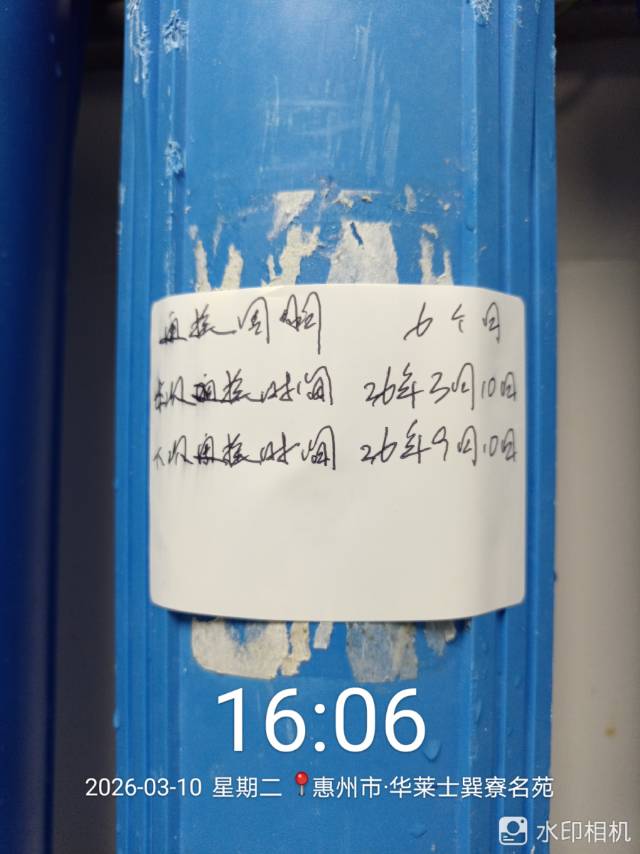 更换周期 6个月
本次更换时间 26年3月10日
下次更换时间 26年9月10日
16:06
2026-03-10 星期二 惠州市·华莱士巽寮名苑
水印相机